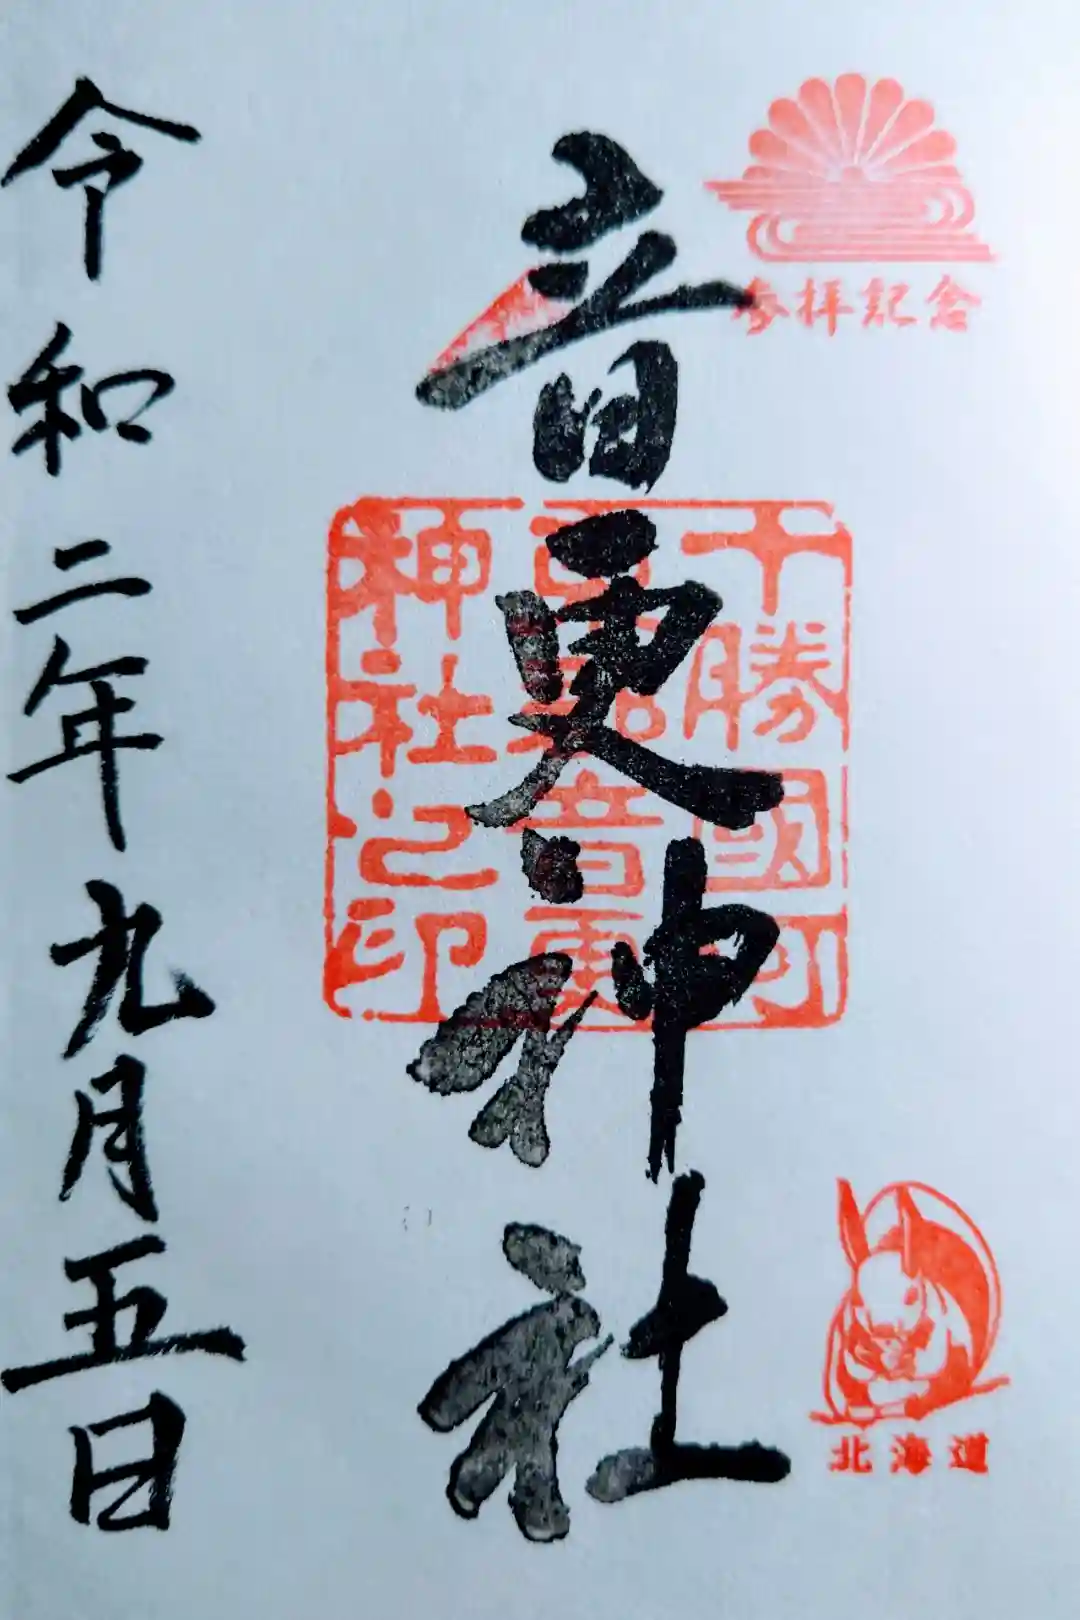 参拝記念
北海道
音更神社
十勝國河
西郡音更
神社之印
令和二年九月五日